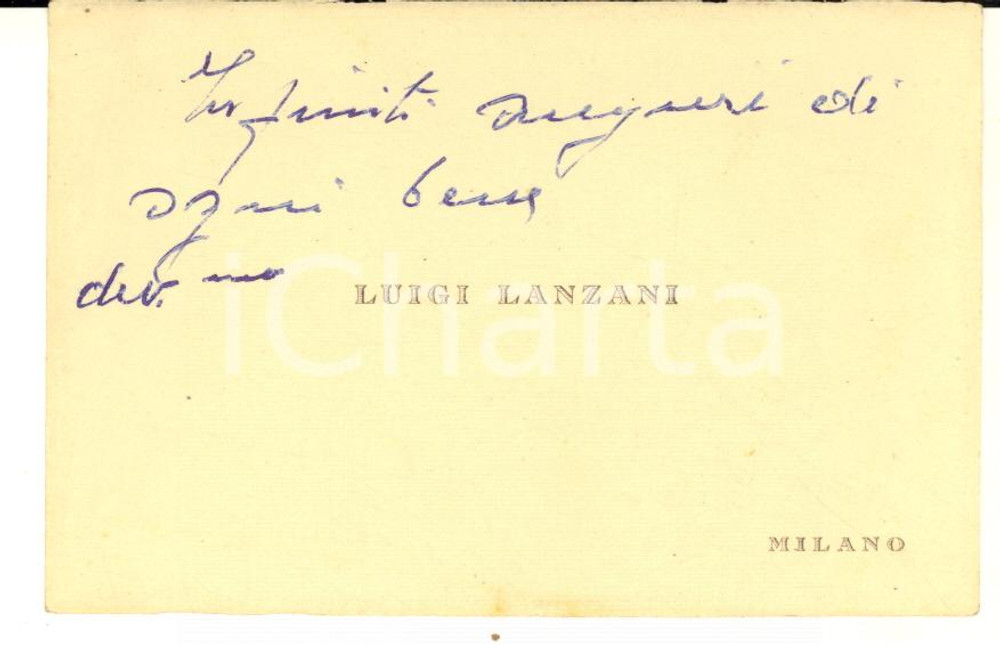 Infiniti auguri di
ogni bene
dev.mo LUIGI LANZANI
iCharta
MILANO